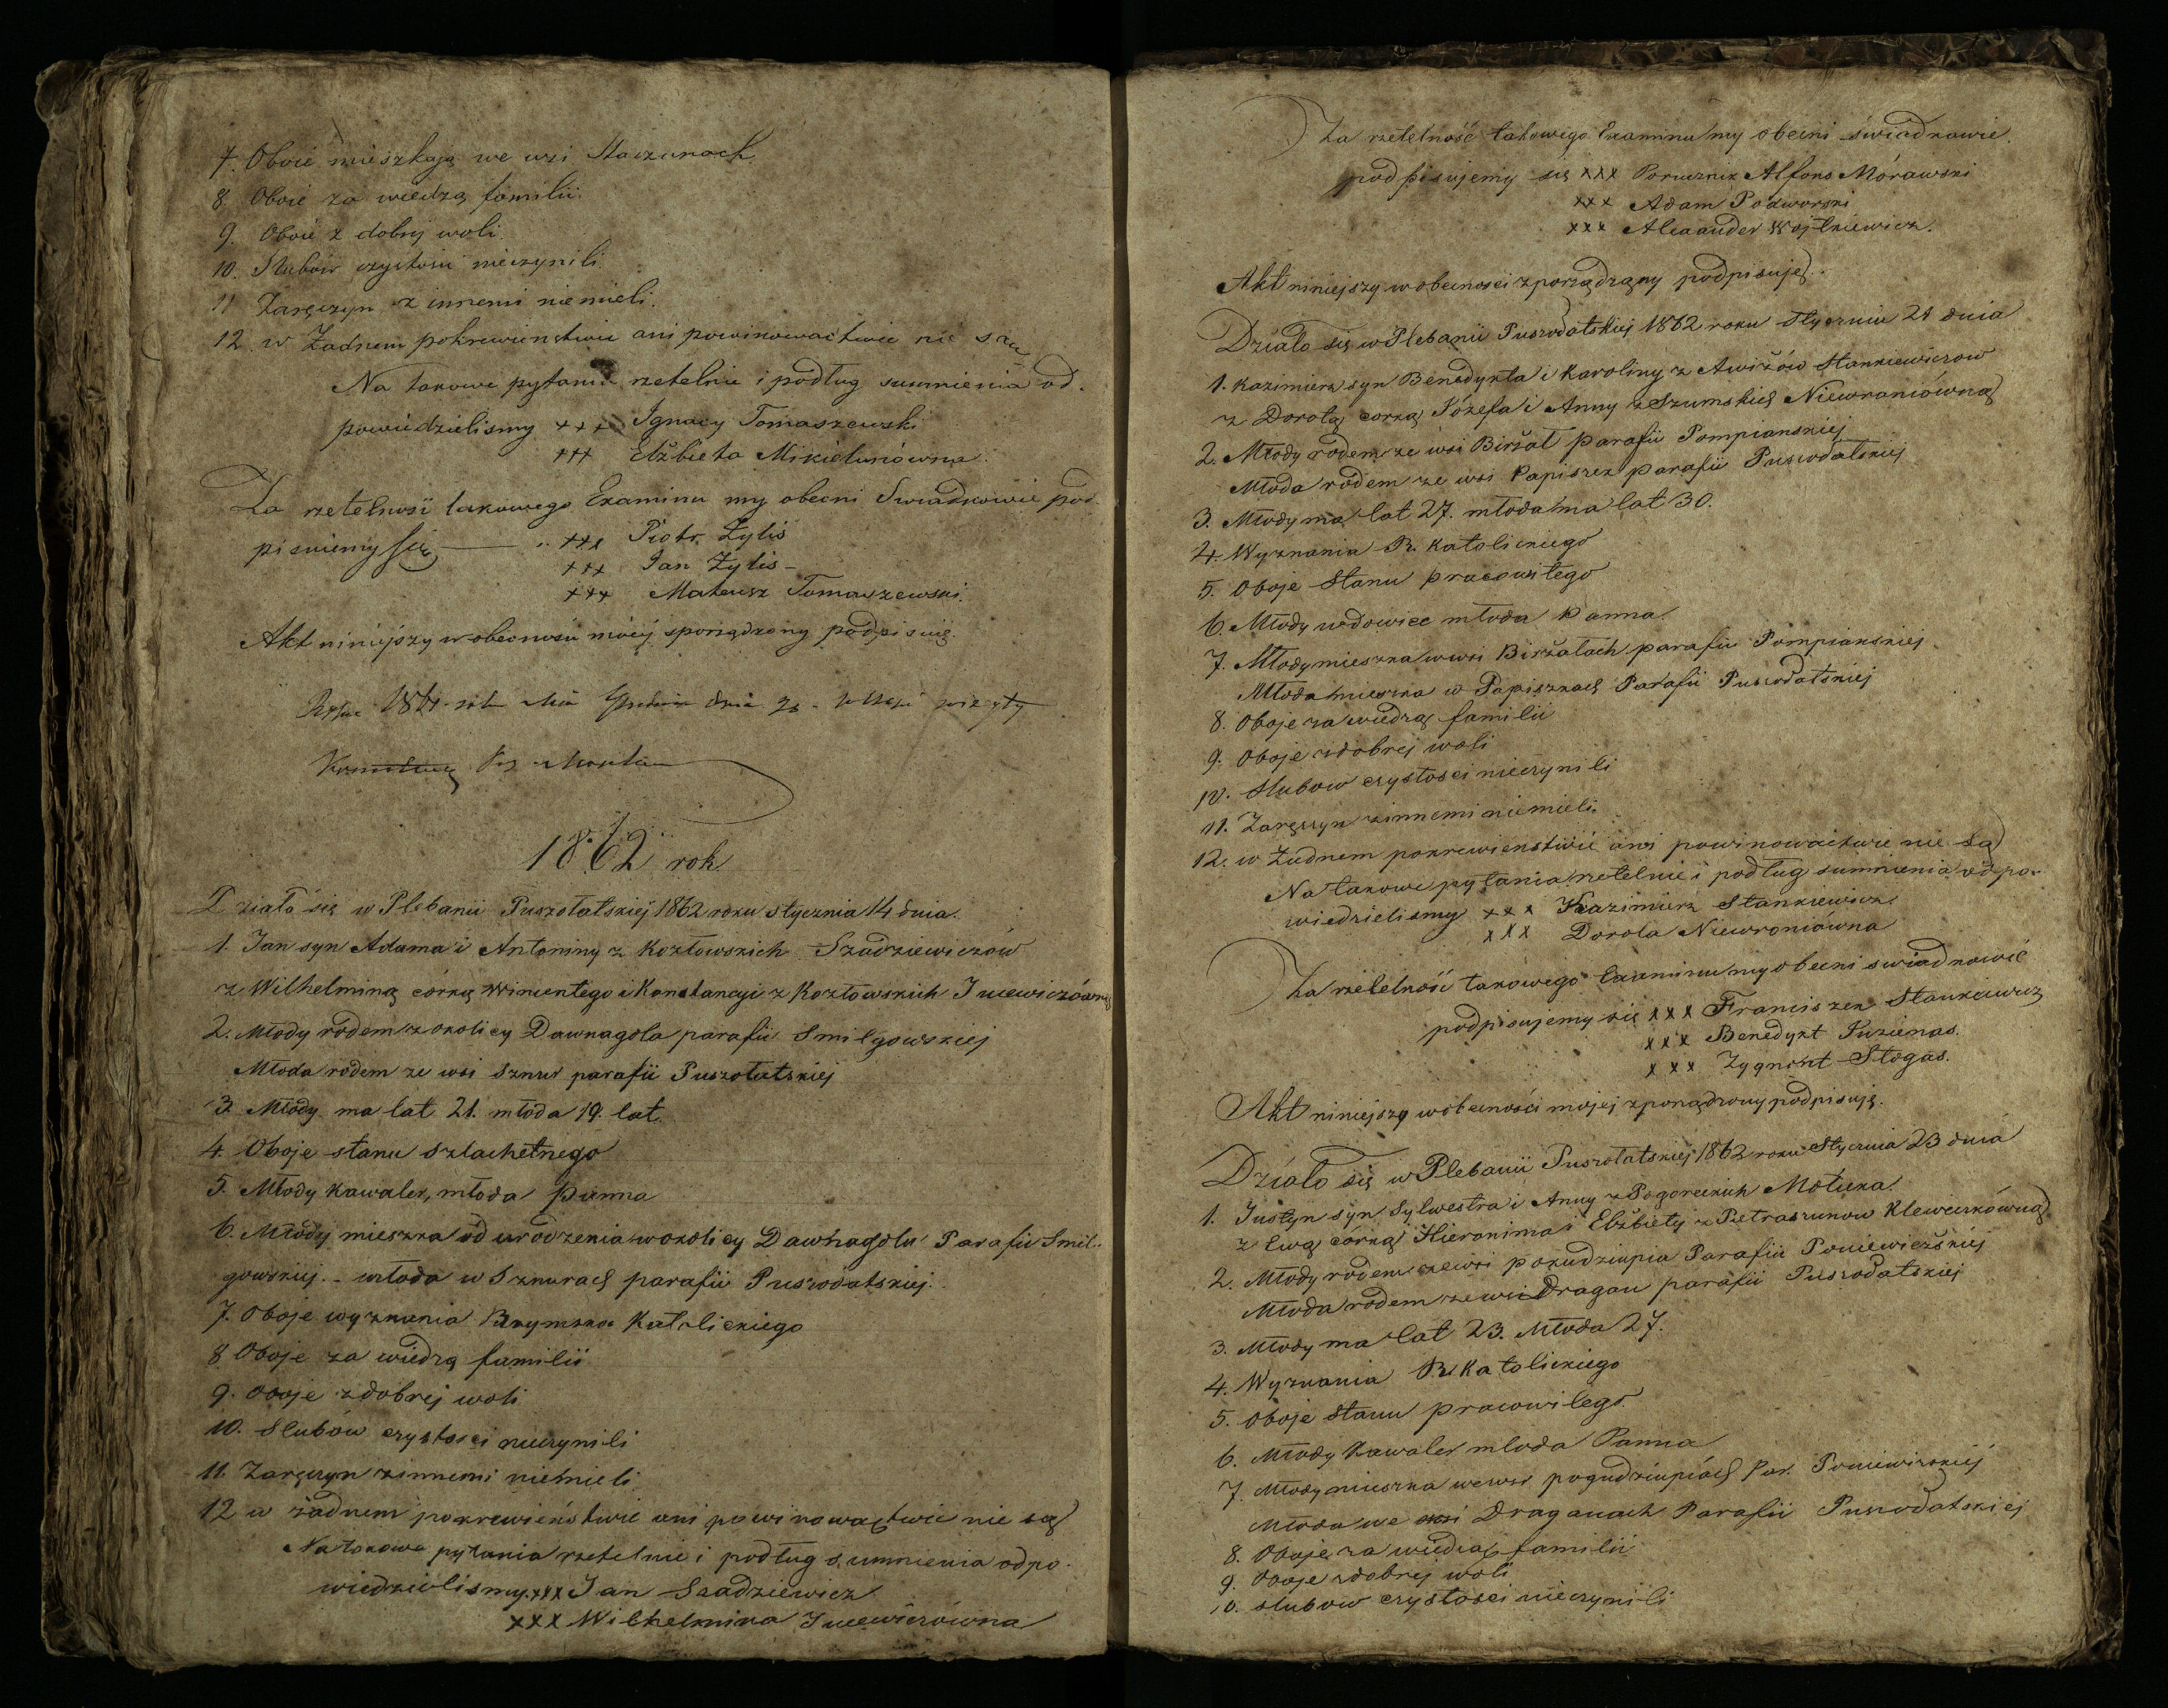 7. Oboie mieszkają we wsi Staczunach.
8. Oboie za wiedzą familii.
9. Oboie z dobrej woli.
10. Slubow czystosci nieczynili.
11 Zaręczyn z innemi niemieli.
12. w Żadnem pokrewienstwie ani powinowactwie nie są
Na takowe pytania rzetelnie i podług sumnienia od.
powiedzielismy +++ Ignacy Tomaszewski
+++ Elżbieta Mikielunówna.
Za rzetelność takowego Examinu my obecni Swiadkowie pod-
pisuiemy się +++ Piotr Żylis
+++ Jan Żylis -
+++ Mateusz Tomaszewski.
Akt niniejszy w obecnosci mojej sporządzony podpisuię.
1862 rok
Działo się w Plebanii Puszołatskiej 1862 roku stycznia 14 dnia.
1. Jan syn Adama i Antoniny z Kozłowskich Szadziewiczów
z Wilhelminą córką Wincentego i Konstancyi z Kozłowskich Jucewiczówną
2. Młody rodem z okolicy Dawnagola parafii Smilgowskiej
Młoda rodem ze wsi Sznur parafii Puszołatskiej
3. Młody ma lat 21. młoda 19. lat.
4. Oboje stanu szlachetnego
5. Młody Kawaler, młoda panna
6. Młody mieszka od urodzenia w okolicy Dawnagolu Parafii Smil-
gowskiej. - młoda w Sznurach parafii Puszołatskiej.
7. Oboje wyznania Rzymsko Katolickiego
8 Oboje za wiedzą familii
9. Oboje z dobrej woli
10. Slubów czystosci nieczynili
11. Zaręczyn zinnemi niemieli
12 w żadnem pokrewieństwie ani powinowactwie nie są
Na takowe pytania rzetelnie i podług sumnienia odpo-
wiedzielismy. xxx Jan Szadziewicz
xxx Wilhelmina Jucewiczówna
Za rzetelność takowego Examinu my obecni świadkowie.
podpisujemy się xxx Porucznik Alfons Mórawski
xxx Adam Podworski
xxx Alexander Wojtkiewicz.
Akt niniejszy w obecnosci zporządzony podpisuję.
Działo się w Plebanii Puszołatskiej 1862 roku Stycznia 21 dnia
1. Kazimierz syn Benedykta i Karoliny z Awiżów Stankiewiczow
z Dorotą corką Józefa i Anny z Szumskich Niewroniówną
2. Młody rodem ze wsi Birżał parafii Pompianskiej
Młoda rodem ze wsi Papiszek parafii Puszołatskiej
3. Młody ma lat 27. młoda ma lat 30.
4. Wyznania R. Katolickiego
5. Oboje Stanu pracowitego
6. Młody wdowiec młoda Panna.
7. Młody mieszka w wsi Birżałach parafii Pompianskiej
Młoda mieszka w Papiszkach Parafii Puszołatskiej
8. Oboje za wiedzą familii
9. Oboje z dobrej woli
10. Slubow czystosci nieczynili
11. Zaręczyn zinnemi niemieli.
12. w Żadnem pokrewienstwie ani powinowactwie nie są
Na takowe pytania rzetelnie i podług sumnienia odpo-
wiedzielismy xxx Kazimierz Stankiewicz
xxx Dorota Niewroniówna
Za rzetelność takowego Examinu my obecni swiadkowie
podpisujemy się xxx Franciszek Stankiewicz
xxx Benedykt Kuzienas.
xxx Zygmont Stogas.
Akt niniejszy w obecności mojej zporządzony podpisuję.
Działo się w Plebanii Puszołatskiej 1862 roku Stycznia 23 dnia
1. Justyn syn Sylwestra i Anny z Pogoreckich Motuza
z Ewą córką Hieronima i Elżbiety z Pietraszunow Kleweczkówną
2. Młody rodem ze wsi pokudziupia Parafii Poniewieżskiej
Młoda rodem ze wsi Dragan parafii Puszołatskiej
3. Młody ma lat 23. Młoda 27.
4. Wyznania R. Katolickiego
5. Oboje stanu pracowitego
6. Młody Kawaler młoda Panna
7. Młody mieszka we wsi pogudziupiach Par. Poniewiezskiej
Młoda we wsi Draganach Parafii Puszołatskiej
8. Oboje za wiedzą familii
9. Oboje z dobrej woli
10. slubow czystosci nieczynili